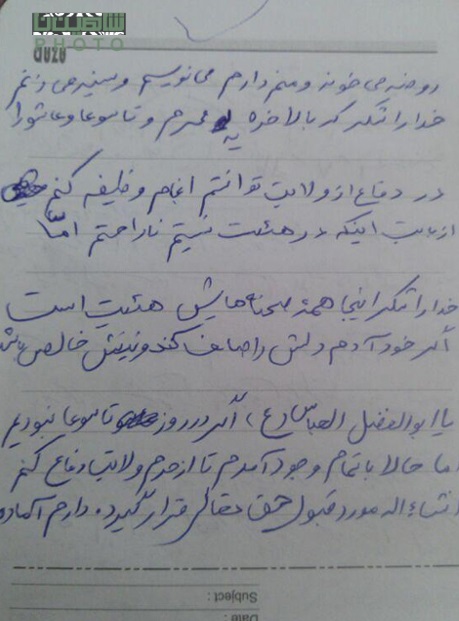 روضه می خونه و منم دارم می نویسم و سینه می زنم
خدا را شکر که بالاخره یه محرم و تاسوعا و عاشورا
در دفاع از ولایت توانستم انجام وظیفه کنم
از بابت اینکه در هیئت نیستم ناراحتم امّا
خدا را شکر اینجا همهٔ صحنه هایش هیئت است
اگر خود آدم دلش را صاف کند و نیتش خالص باشد
یا ابوالفضل العباس (ع)، اگر در روز تاسوعا نبودیم
اما حالا با تمام وجود آمدم تا از حرم ولایت دفاع کنم
انشاءاله مورد قبول حق تعالی قرار گیرد. دارم آماده
Subject :
Date :
PHOTO